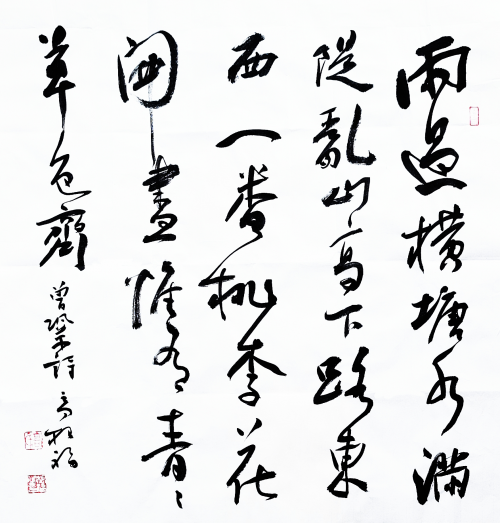 雨過橫塘水滿
堤亂山高下路東
西一番桃李花
開盡惟有青〻
草色齊 曾鞏詩